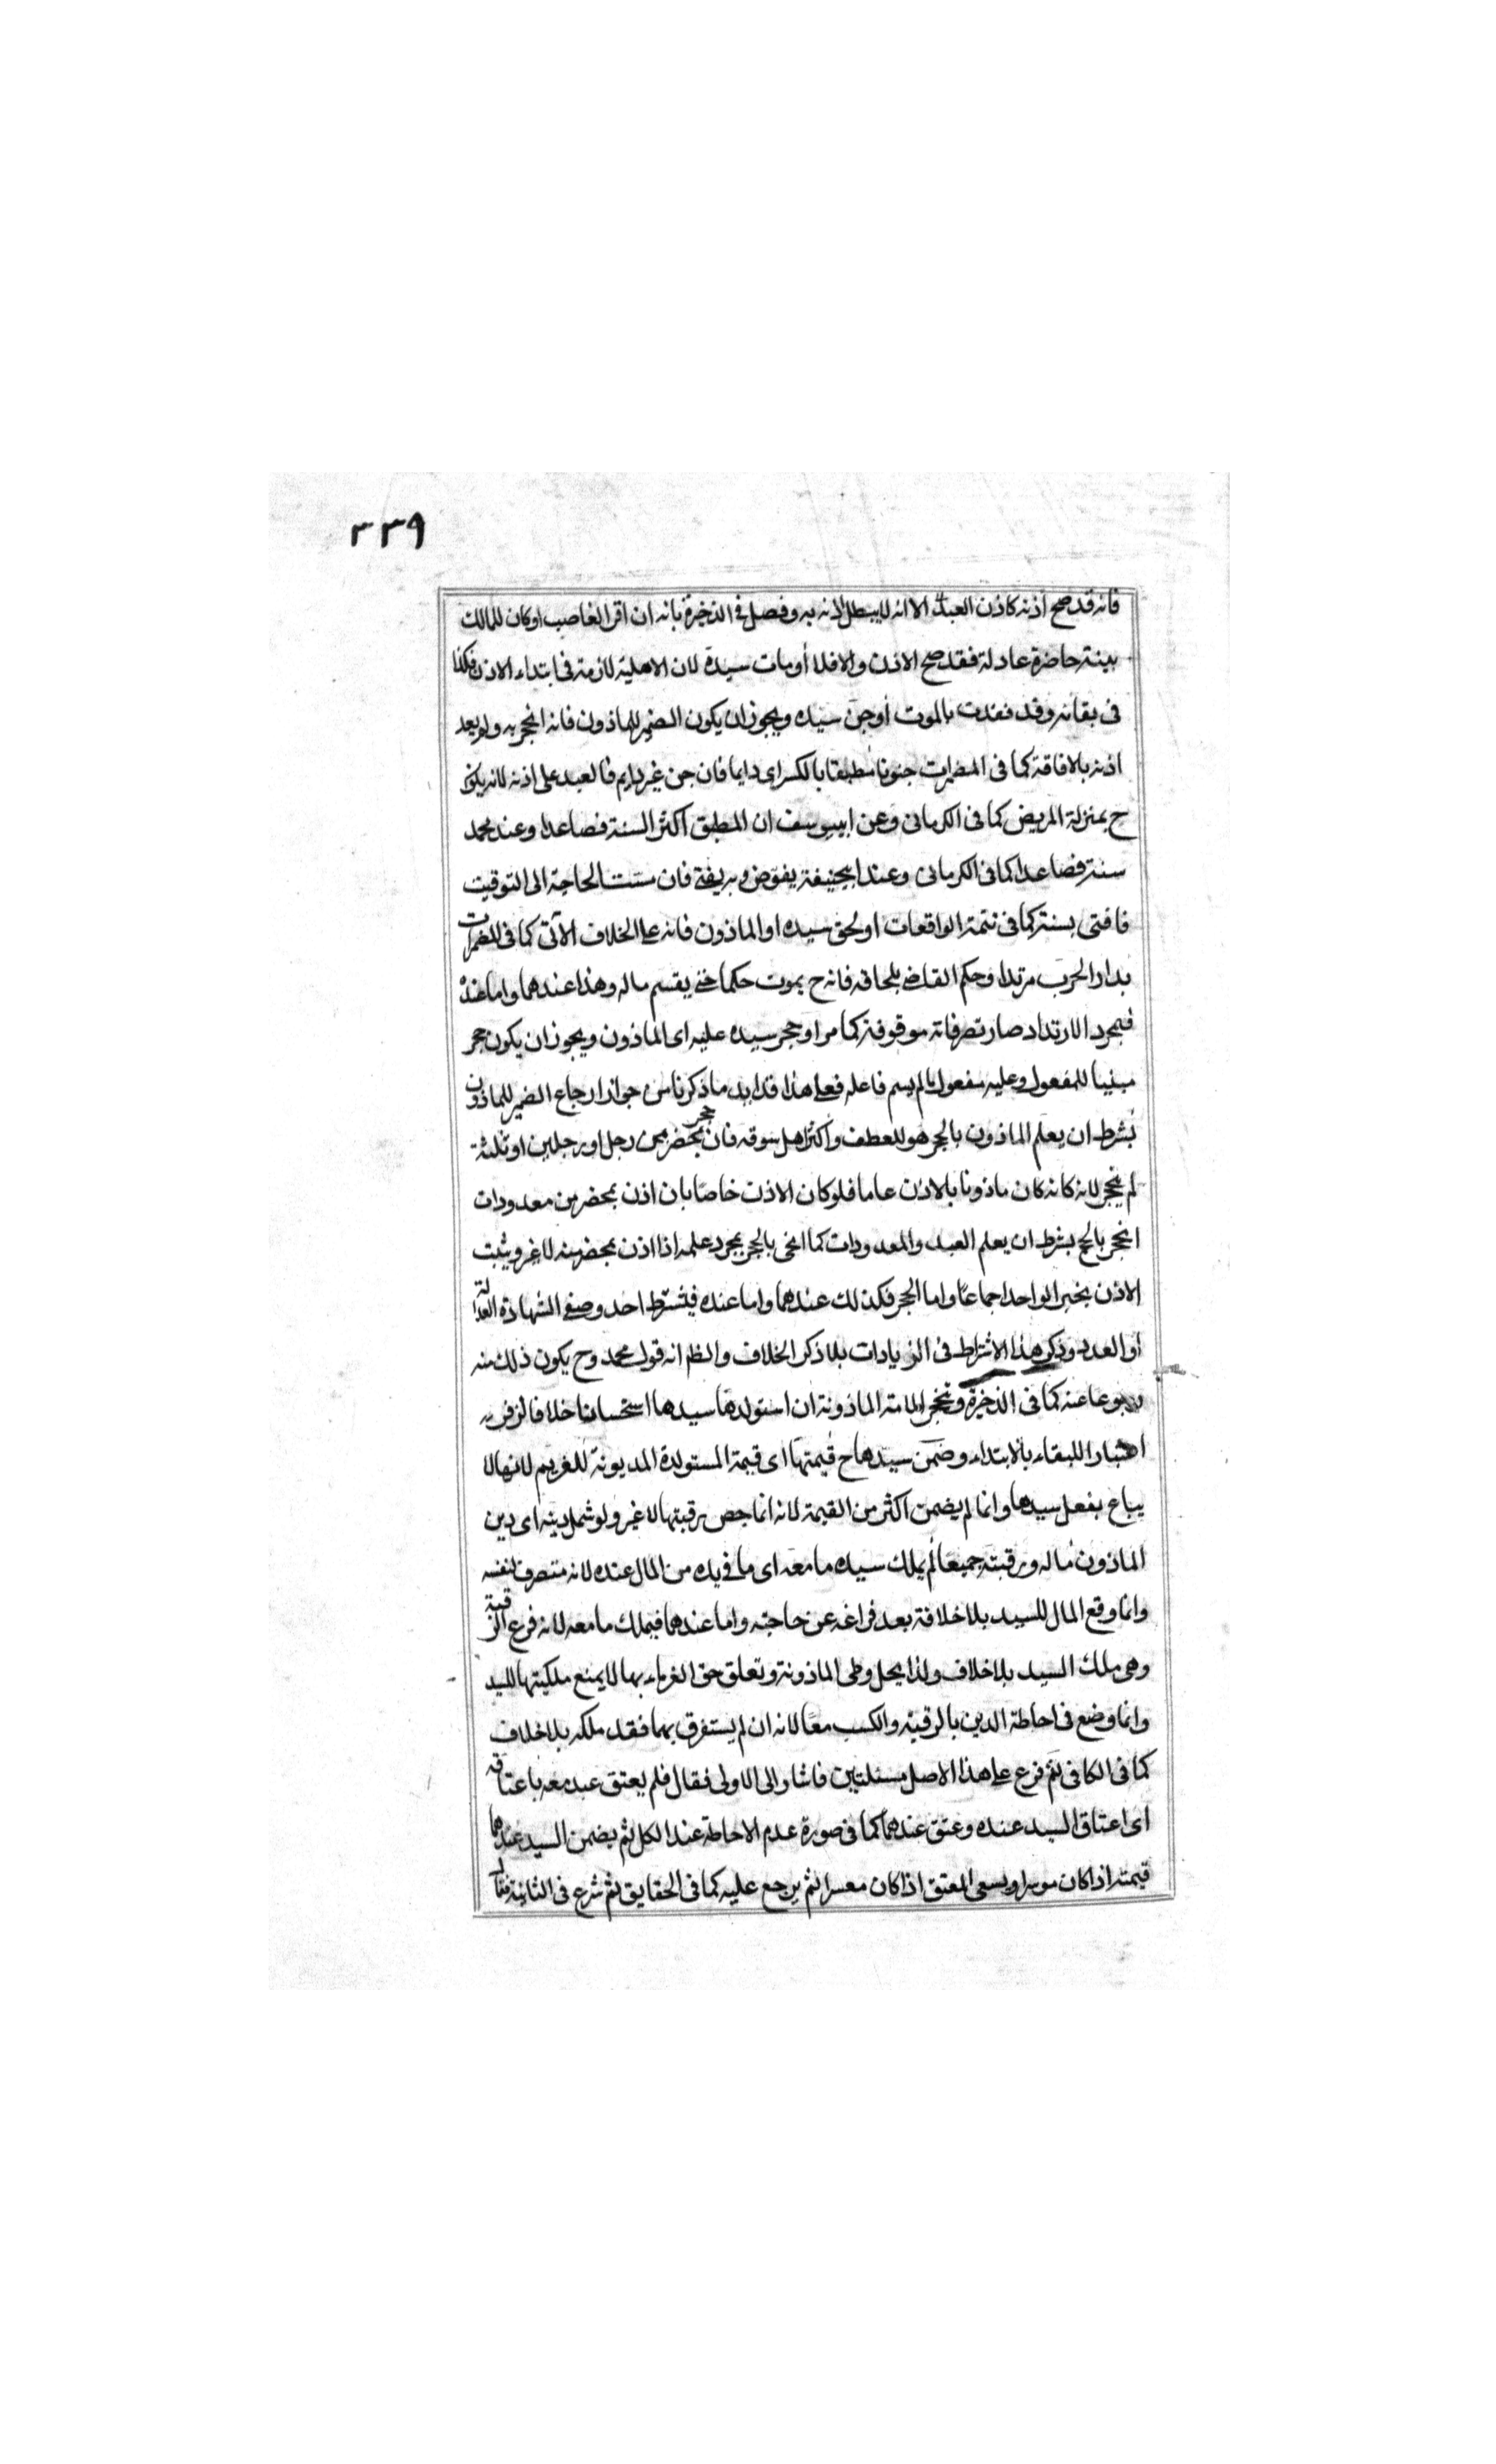 ٣٣٩
فانه قد صح اذنه كاذن العبد الا انه لا يبطل لانه به وفصل في الذخيرة بانه ان اقر الغاصب او كان للمالك
بينة حاضرة عادلة فقد صح الاذن والا فلا أو مات سيده لان الاهلية لازمة في ابتداء الاذن فكذا
في بقائه وقد فقدت بالموت أو جن سيده ويجوز ان يكون الضمير للماذون فانه انحجر به ولم يعد
اذنه بالافاقة كما في المضمرات جنونا مطبقا بالكسر اى دايما فان جن غير دايم فالعبد على اذنه لانه يكون
ح بمنزلة المريض كما في الكرمانى وعن ابييوسف ان المطبق اكثر السنة فصاعدا وعند محمد
سنة فصاعدا كما فى الكرمانى وعند ابيحنيفة يفوض وبه يفتى فان مست الحاجة الى التوقيت
فافتى بسنة كما فى تتمة الواقعات أو لحق سيده او الماذون فانه على الخلاف الآتى كما فى المضمرات
بدار الحرب مرتدا وحكم القاضى بلحاقه فانه ح يموت حكما حتى يقسم ماله وهذا عندهما واما عنده
فبمجرد الارتداد صار تصرفاته موقوفة كما مر او حجر سيده عليه اى الماذون ويجوز ان يكون حجر
مبنيا للمفعول وعليه مفعول ما لم يسم فاعله فعلى هذا قد ايد ما ذكرنا من جواز ارجاع الضمير للماذون
بشرط ان يعلم الماذون بالحجر هو للعطف وأكثر اهل سوقه فان حجر بمحضر من رجل او رجلين او ثلثة
لم ينحجر لانه كانه كان ماذونا بالاذن عاما فلو كان الاذن خاصا بان اذن بمحضر من معدودات
انحجر بالحجر بشرط ان يعلم العبد والمعدودات كما انحى بالحجر بمجرد علمه اذا اذن بمحضر منه لا غير ويثبت
الاذن بخبر الواحد اجماعا واما الحجر فكذلك عندهما واما عنده فيشترط احد وصفى الشهادة العدالة
أو العدد وذكر هذا الاشتراط فى الزيادات بلا ذكر الخلاف والظ انه قول محمد وح يكون ذلك منه
رجوعا عنه كما فى الذخيرة وتنحجر الامة الماذونة ان استولدها سيدها استحسانا خلافا لزفر
اعتبارا للبقاء بالابتداء وضمن سيدها ح قيمتها اى قيمة المستولدة المديونة للغريم لانها لا
يباع بفعل سيدها وانما لم يضمن اكثر من القيمة لانه انما خص برقبتها لا غير ولو شمل دينه اى دين
الماذون ماله ورقبته جميعا لم يملك سيده ما معه اى ما فى يده من المال عنده لانه متصرف لنفسه
وانما وقع المال للسيد بلا خلافة بعد فراغه عن حاجته واما عندهما فيملك ما معه لانه فرع الرقبة
وهى ملك السيد بلا خلاف ولذا يحل وطى الماذونة وتعلق حق الغرماء بها لا يمنع ملكيتها للسيد
وانما وضع فى احاطة الدين بالرقبة والكسب معا لانه ان لم يستغرق بهما فقد ملكه بلا خلاف
كما فى الكافى ثم فرع على هذا الاصل مسئلتين فاشار الى الاولى فقال فلم يعتق عبد معه باعتاقه
اى اعتاق السيد عنده وعتق عندهما كما فى صورة عدم الاحاطة عند الكل ثم يضمن السيد عندهما
قيمته اذا كان موسرا ويسعى المعتق اذا كان معسرا ثم يرجع عليه كما فى الحقايق ثم شرع فى الثانية فقال